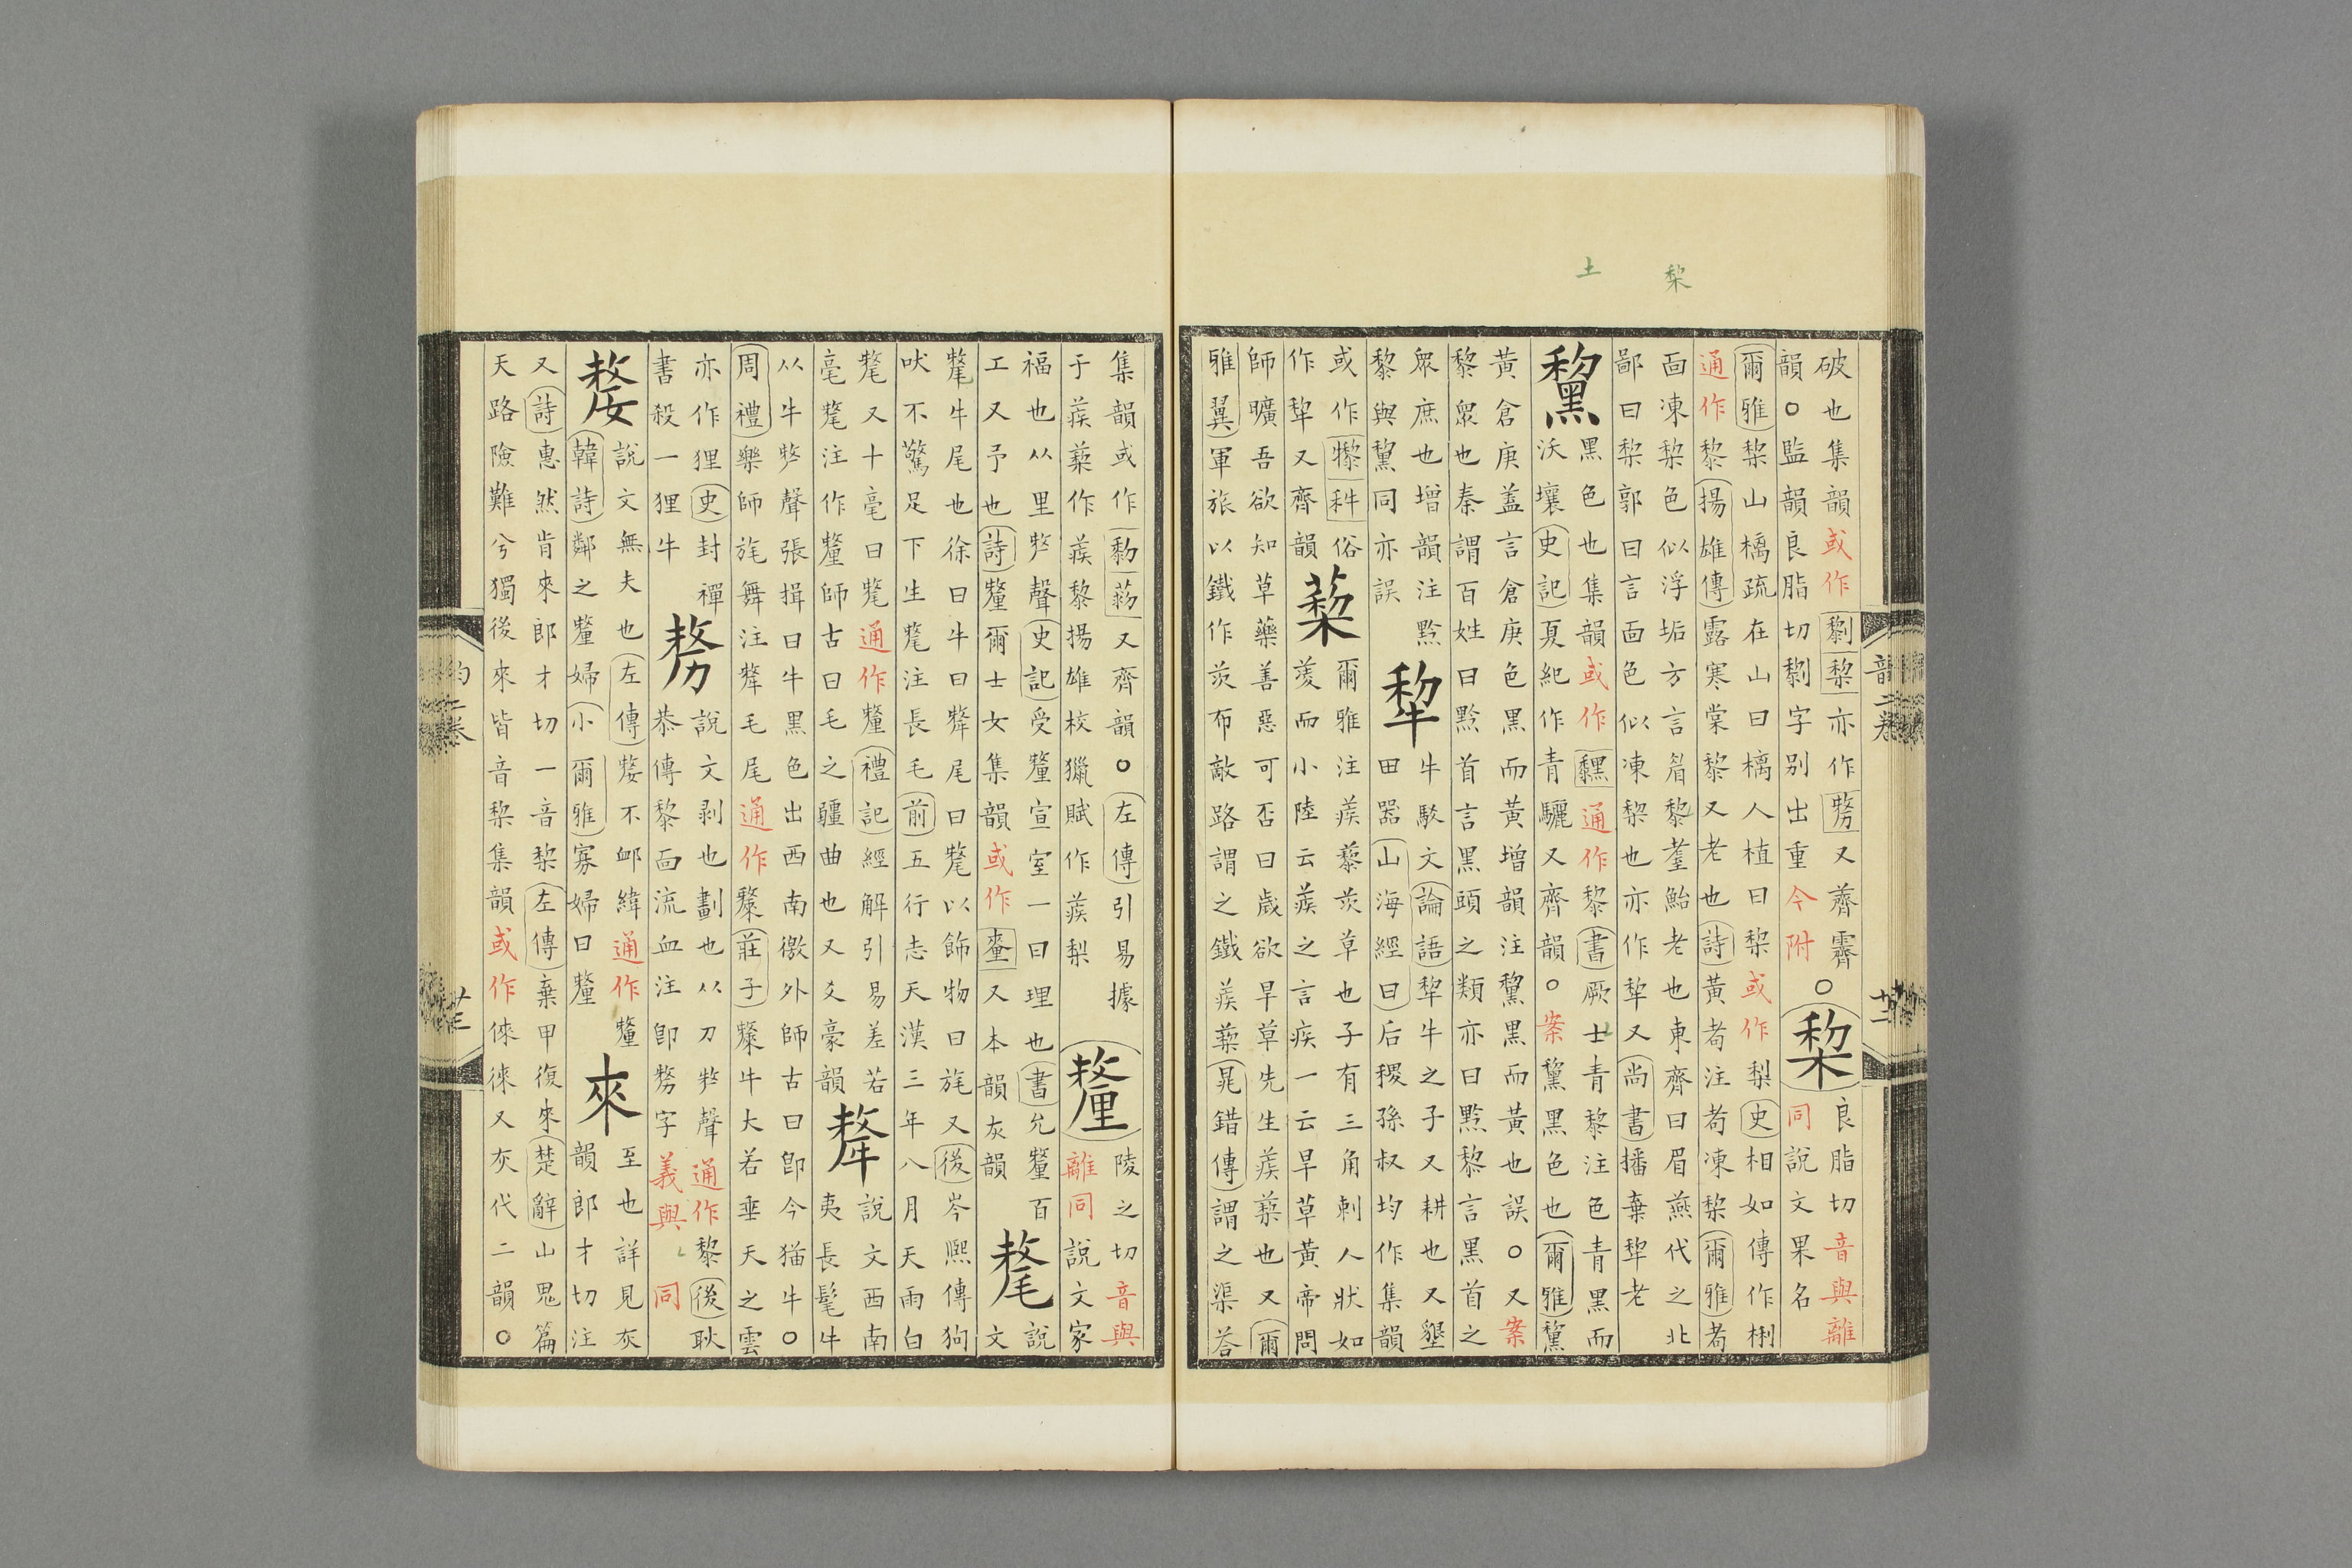 破也集韻或作劙棃亦作剺又齊霽
韻○監韻良脂切劙字別出重今附○
棃
良脂切音與離
同說文果名
爾雅棃山樆疏在山曰樆人植曰棃或作梨史相如傳作梸
通作黎揚雄傳露寒棠黎又老也詩黃耇注耇凍棃爾雅耇
面凍棃色似浮垢方言眉黎耋鮐老也東齊曰眉燕代之北
鄙曰棃郭曰言面色似凍黎也亦作犂又尚書播棄犂老
黧
黑色也集韻或作通作黎書厥土青黎注色青黑而
沃壤史記夏紀作青驪又齊韻○案黧黑色也爾雅黧
黃倉庚蓋言倉庚色黑而黃增韻注黧黑而黃也誤○又案
黎眾也秦謂百姓曰黔首言黑頭之類亦曰黔黎言黑首之
眾庶也增韻注黔
黎與黧同亦誤
犂
牛駁文論語犂牛之子又耕也又墾
田器山海經曰后稷孫叔均作集韻
或作俗
作犁又齊韻
蔾
爾雅注蒺藜茨草也子有三角刺人狀如
蔆而小陸云蒺之言疾一云旱草黃帝問
師曠吾欲知草藥善惡可否曰歲欲旱草先生蒺蔾也又爾
雅翼軍旅以鐵作茨布敵路謂之鐵蒺蔾鼂錯傳謂之渠荅
集韻或作又齊韻○左傳引易據
于蒺蔾作蒺黎揚雄校獵賦作蒺梨
釐
陵之切音與
離同說文家
福也从里𠩺聲史記受釐宣室一曰理也書允釐百
工又予也詩釐爾士女集韻或作又本韻灰韻
氂
說文
犛牛尾也徐曰牛曰犛尾曰氂以飾物曰旄又後岑熙傳狗
吠不驚足下生氂注長毛前五行志天漢三年八月天雨白
氂又十毫曰氂通作釐禮記經解引易差若
毫氂注作釐師古曰毛之彊曲也又爻豪韻
犛
說文西南
夷長髦牛
从牛𠩺聲張揖曰牛黑色出西南徼外師古曰卽今猫牛○
周禮樂師旄舞注犛毛尾通作斄莊子斄牛大若垂天之雲
亦作狸史封禪
書殺一狸牛
剺
說文剥也劃也从刀𠩺聲通作黎後耿
恭傳黎面流血注卽剺字義與同
嫠
說文無夫也左傳嫠不卹緯通作釐
韓詩鄰之釐婦小爾雅寡婦曰釐
來
至也詳見灰
韻郎才切注
又詩惠然肯來郎才切一音棃左傳棄甲復來楚辭山鬼篇
天路險難兮獨後來皆音棃集韻或作倈徠又灰代二韻○
棃
土
韻二卷